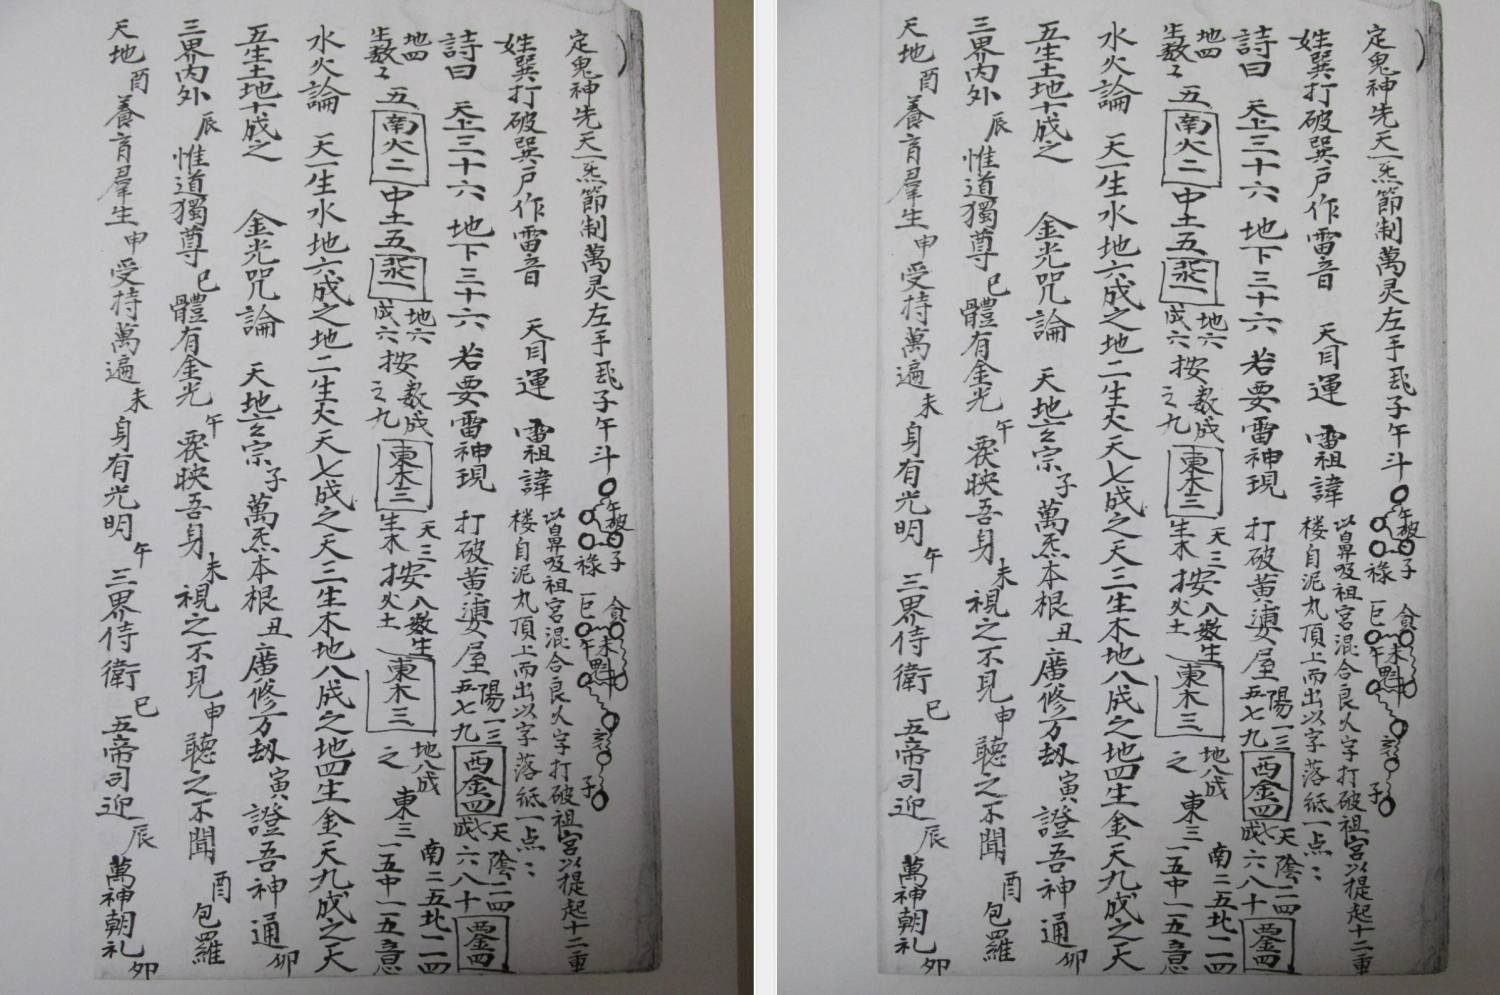 定鬼神先天一炁節制萬灵左手飛子午斗 午 破 子 祿 巨 貪 午 未 子
姓巽打破巽户作雷音 天目運 雷祖諱
以鼻吸祖宮混合良火字打破祖宮以提起十二重
楼自泥丸頂上而出以字落紙一点〻
詩曰 天上三十六 地下三十六 若要雷神現 打破黃婆屋 陽一三五七九 西金四 成七 天陰二四六八十 西金四
地四生數〻 五 南火二 中土五 北一 地六成六 按數成之九 東木三 天三生木 按八數生火土 東木三 地八成之 東三南二五北二四一五中一五意
水火論 天一生水地六成之地二生火天七成之天三生木地八成之地四生金天九成之天
五生土地十成之 金光咒論 天地玄宗子萬炁本根丑廣修万劫寅證吾神通卯
三界內外辰惟道獨尊巳體有金光午覆映吾身未視之不見申聽之不聞酉包羅
天地酉養育羣生申受持萬遍未身有光明午三界侍衛巳五帝司迎辰萬神朝礼卯
定鬼神先天一炁節制萬灵左手飛子午斗 午 破 子 祿 巨 貪 午 未 子
姓巽打破巽户作雷音 天目運 雷祖諱
以鼻吸祖宮混合良火字打破祖宮以提起十二重
楼自泥丸頂上而出以字落紙一点〻
詩曰 天上三十六 地下三十六 若要雷神現 打破黃婆屋 陽一三五七九 西金四 成七 天陰二四六八十 西金四
地四生數〻 五 南火二 中土五 北一 地六成六 按數成之九 東木三 天三生木 按八數生火土 東木三 地八成之 東三南二五北二四一五中一五意
水火論 天一生水地六成之地二生火天七成之天三生木地八成之地四生金天九成之天
五生土地十成之 金光咒論 天地玄宗子萬炁本根丑廣修万劫寅證吾神通卯
三界內外辰惟道獨尊巳體有金光午覆映吾身未視之不見申聽之不聞酉包羅
天地酉養育羣生申受持萬遍未身有光明午三界侍衛巳五帝司迎辰萬神朝礼卯